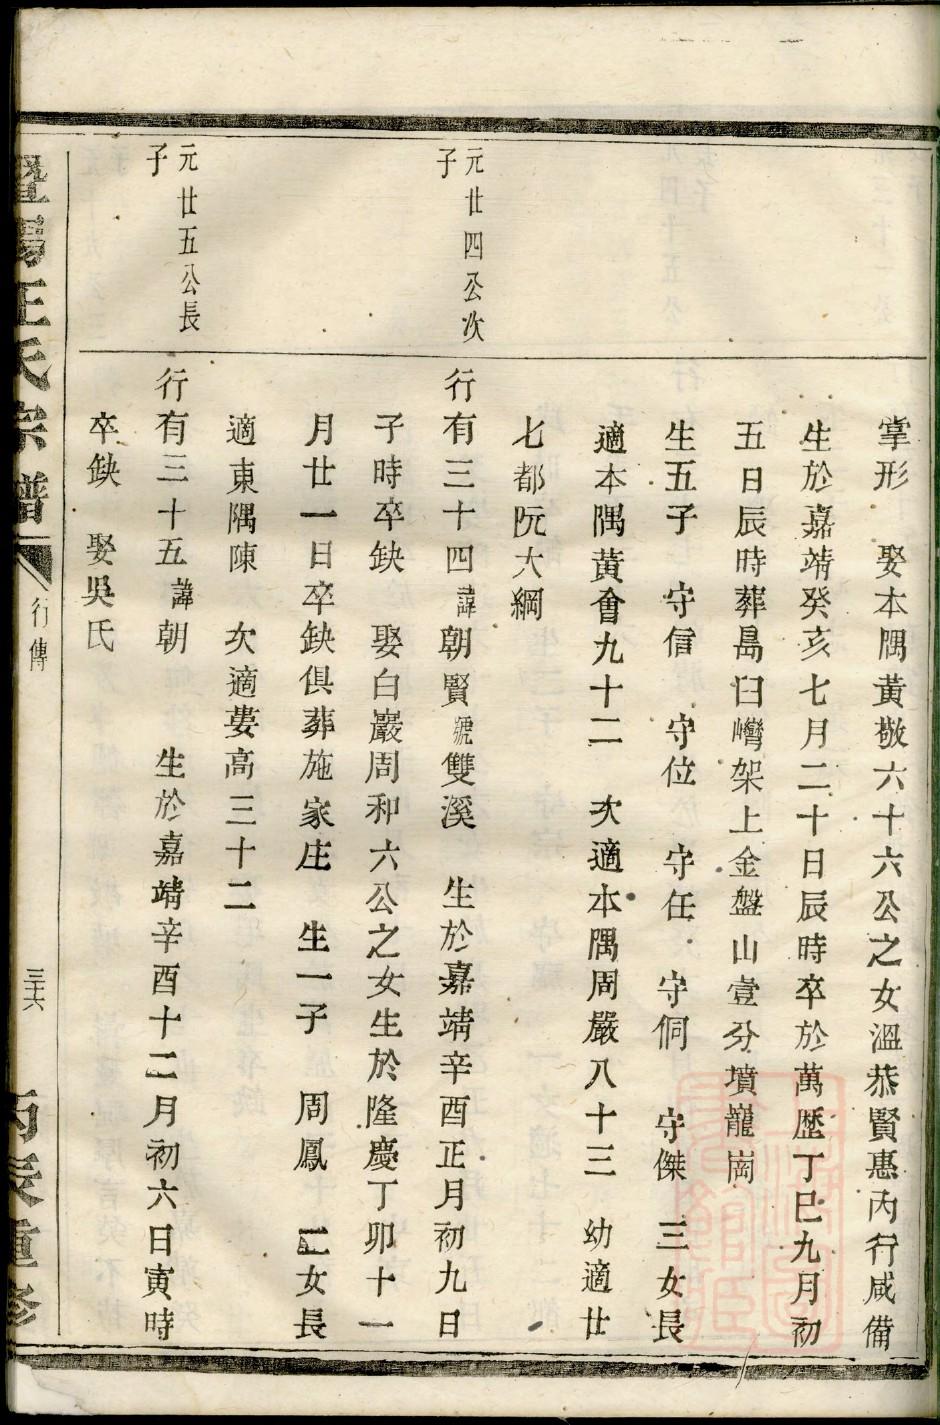 掌形 娶本隅黃敬六十六公之女溫恭賢惠內行咸備
生於嘉靖癸亥七月二十日辰時卒於萬歷丁巳九月初
五日辰時葬島臼灣架上金盤山壹分墳龍崗
生五子 守信 守位 守任 守侗 守傑 三女長
適本隅黃會九十二 次適本隅周嚴八十三 幼適廿
七都阮大綱
元廿四公次
子
行有三十四諱朝賢號雙溪 生於嘉靖辛酉正月初九日
子時卒缺 娶白巖周和六公之女生於隆慶丁卯十一
月廿一日卒缺俱葬施家庄 生一子 周鳳 二女長
適東隅陳 次適婁高三十二
元廿五公長
子
行有三十五諱朝 生於嘉靖辛酉十二月初六日寅時
卒缺 娶吳氏
暨陽汪氏宗譜
行傳
三十六
丙辰重修